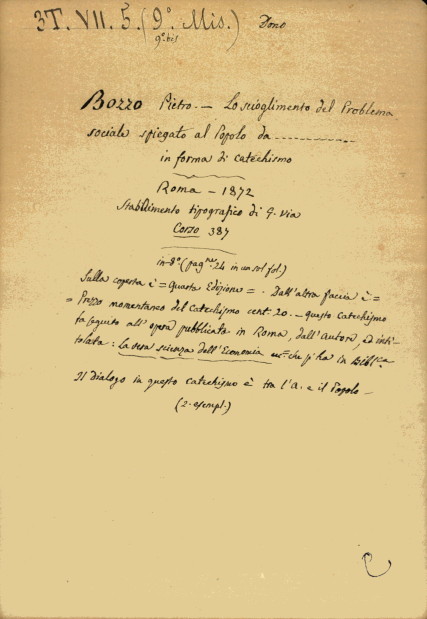 3T. VII. 5. (9.º Mis.) Dono
9º bis
Bozzo Pietro. — Lo scioglimento del Problema
sociale spiegato al Popolo da
in forma di catechismo
Roma — 1872
Stabilimento tipografico di G. via
Corso 387
in-8.º (pag.ne 24 in un sol fol.)
Sulla coperta è = Quarta Edizione = . Dall'altra faccia è =
= Prezzo momentaneo del Catechismo cent. 20. — Questo Catechismo
fa seguito all'opera pubblicata in Roma, dall'autore, ed inti-
tolata: La vera scienza dell'Economia ec.= che si ha in Bibl.ca
Il dialogo in questo catechismo è tra l'A. e il Popolo —
(2. esempl.)